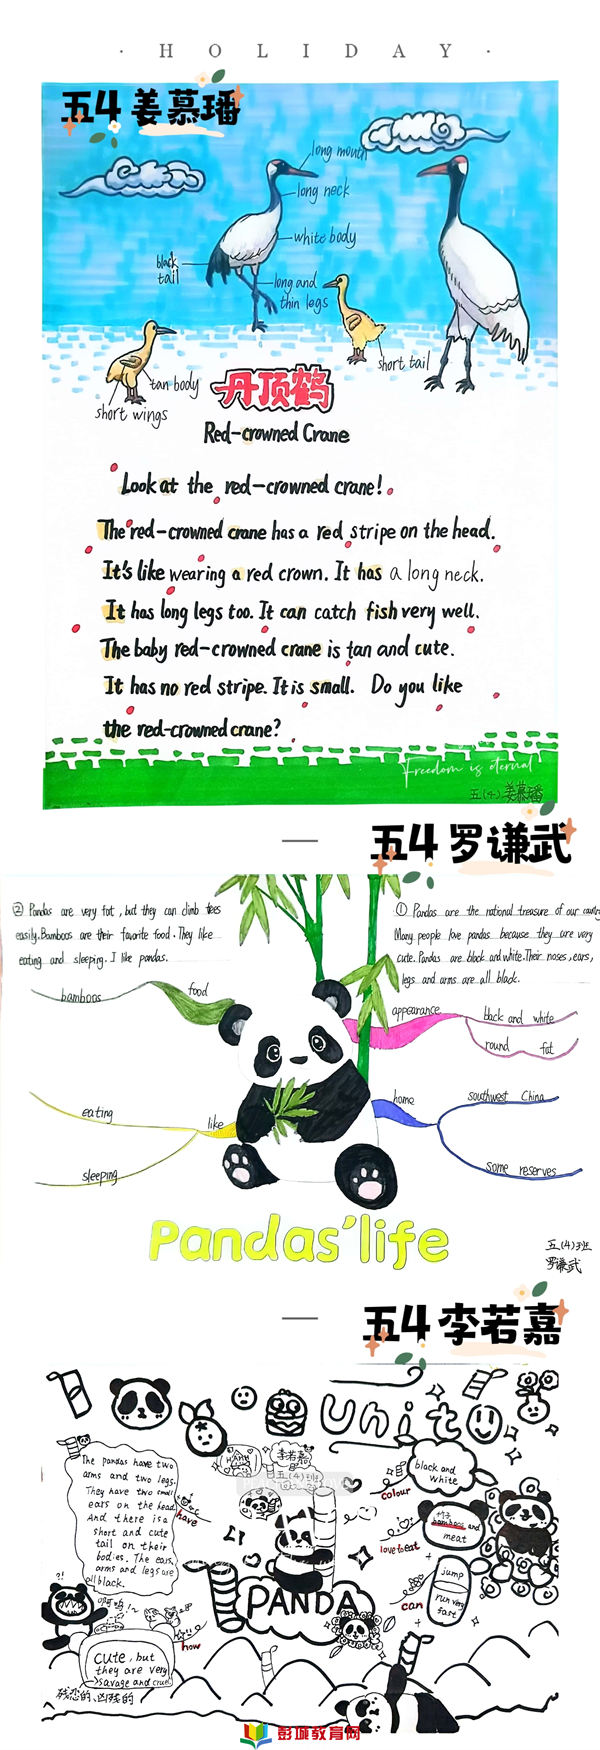 · HOLIDAY ·
五4 姜慕璠
long mouth
long neck
white body
black
tail
long and
thin legs
short tail
tan body
short wings
丹顶鹤
Red-crowned Crane
Look at the red-crowned crane!
The red-crowned crane has a red stripe on the head.
It's like wearing a red crown. It has a long neck.
It has long legs too. It can catch fish very well.
The baby red-crowned crane is tan and cute.
It has no red stripe. It is small. Do you like
the red-crowned crane?
Freedom is eternal
五(4) 姜慕璠
五4 罗谦武
② Pandas are very fat, but they can climb trees
easily. Bamboos are their favorite food. They like
eating and sleeping. I like pandas.
① Pandas are the national treasure of our country
Many people love pandas because they are very
cute. Pandas are black and white. Their noses, ears,
legs and arms are all black.
bamboos
food
appearance
black and white
round fat
eating
like
sleeping
home
southwest China
some reserves
Pandas' life
五(4)班
罗谦武
五4 李若嘉
Unit
The pandas have two
arms and two legs.
They have two small
ears on the head.
And there is a
short and cute
tail on their
bodies. The ears,
arms and legs are
all black.
have
李若嘉
五(4)班
colour
black and
white
love to eat
竹子
bamboos and
meat
can
jump
run very
fast
PANDA
how
cute, but
they are very
savage and cruel
残忍的、凶残的
彭城教育网